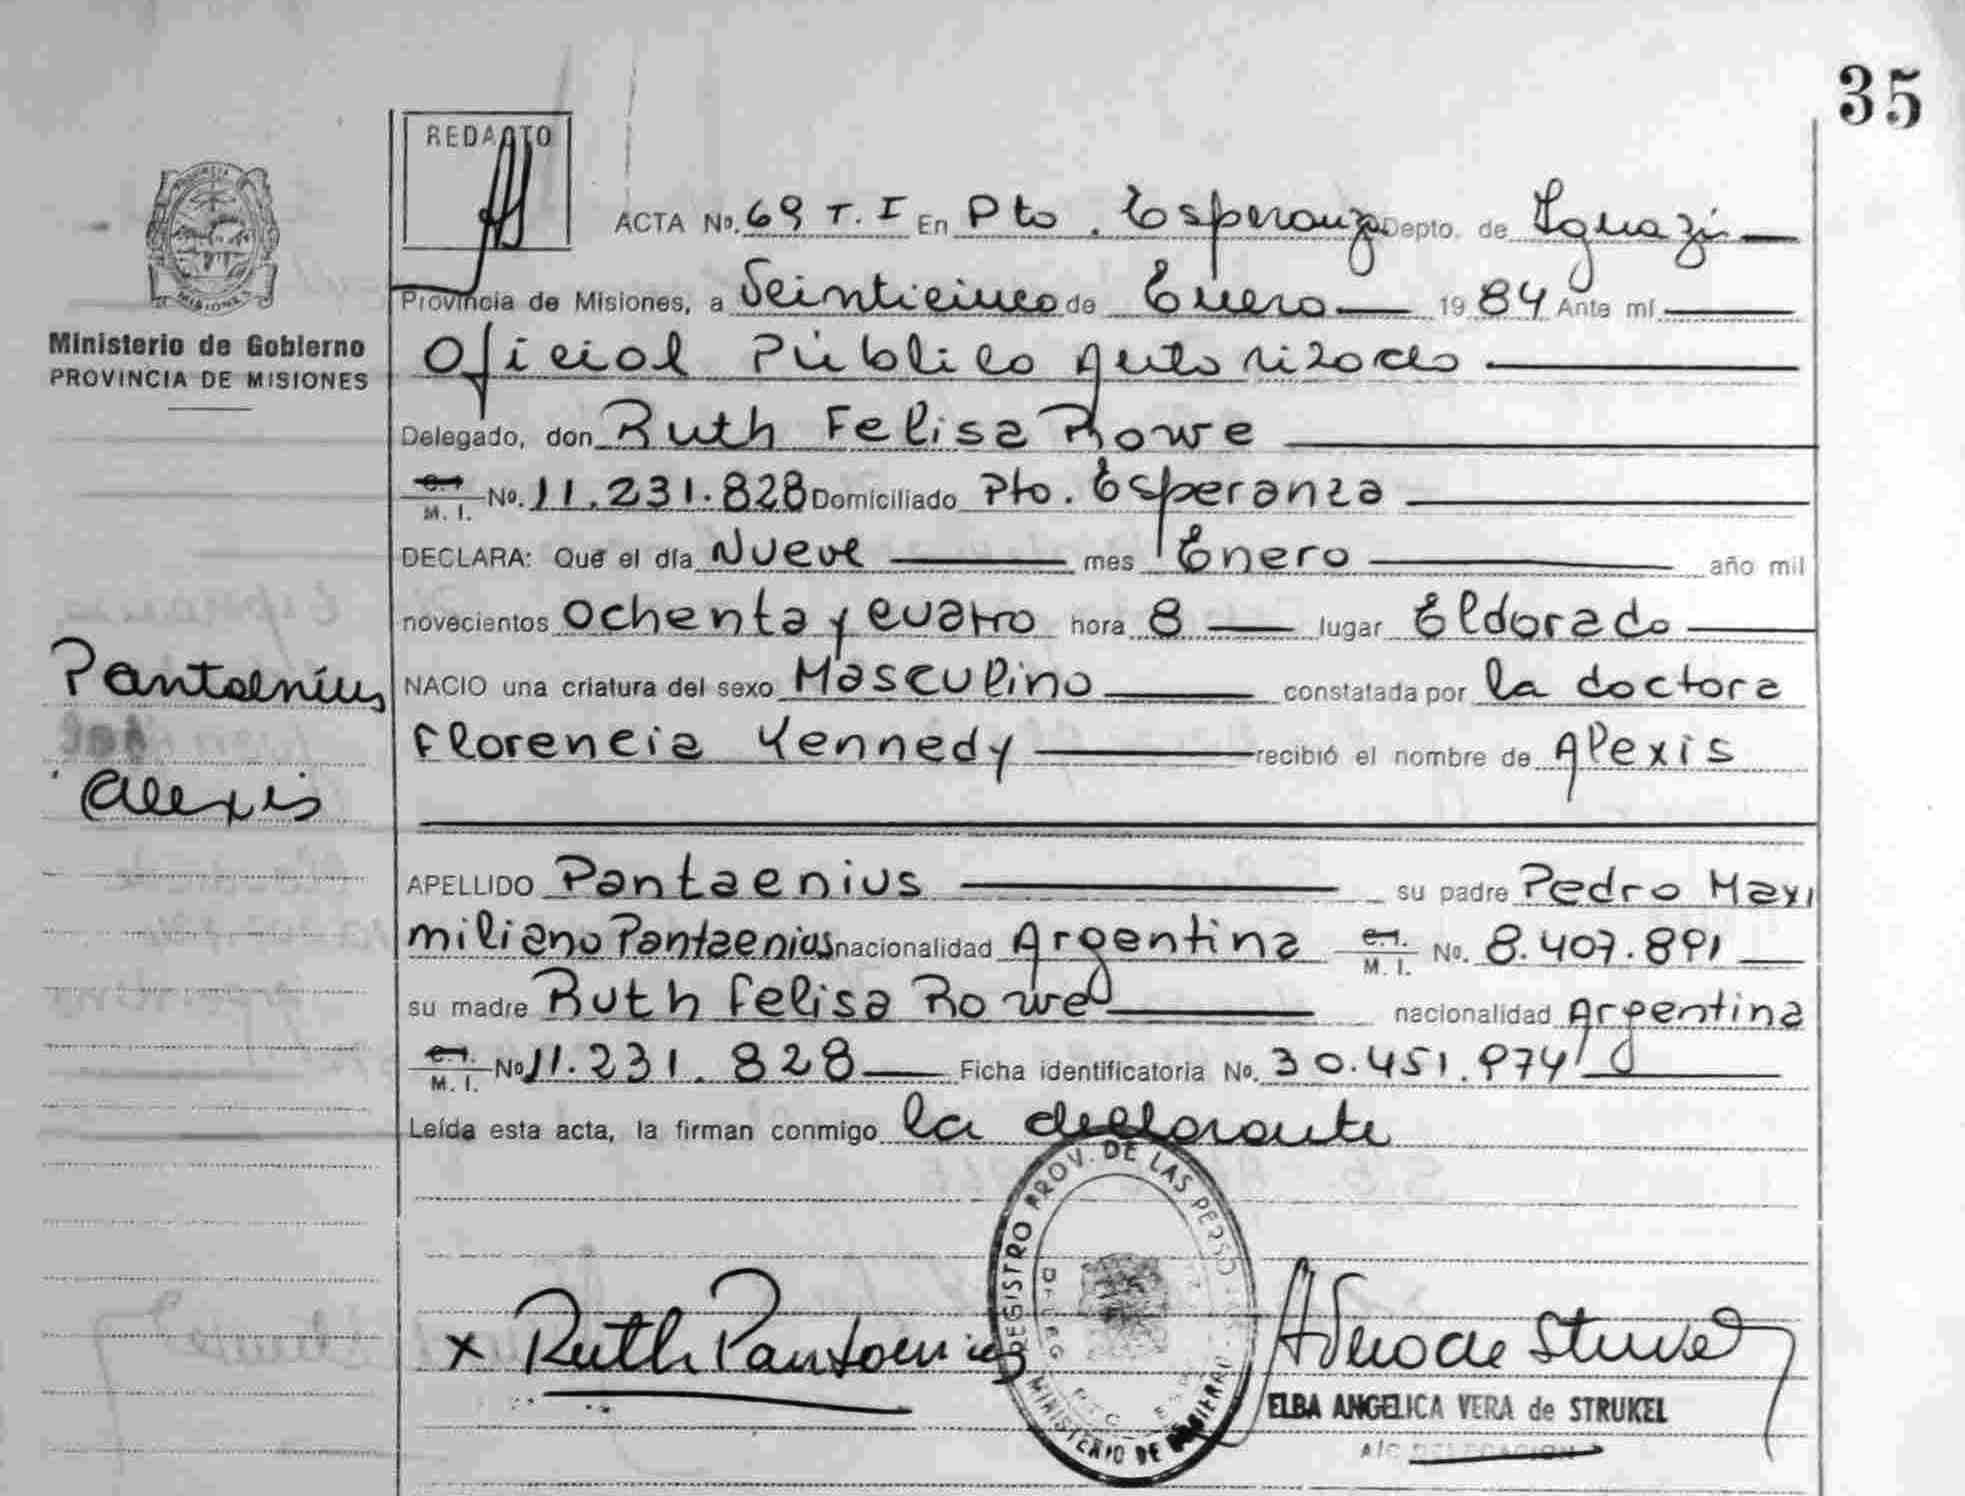 35
REDACTO
ACTA No. 69 T. I En Pto. Esperanza Depto. de Iguazú
Provincia de Misiones, a Veinticinco de Enero 1984 Ante mí
Ministerio de Gobierno
PROVINCIA DE MISIONES
Oficial Público Autorizado
Delegado, don Ruth Felisa Rowe
C.I. M. I. No. 11.231.828 Domiciliado Pto. Esperanza
DECLARA: Que el día Nueve mes Enero año mil
novecientos ochenta y cuatro hora 8 lugar Eldorado
Pantaenius
NACIO una criatura del sexo Masculino constatada por la doctora
Florencia Kennedy recibió el nombre de Alexis
Alexis
APELLIDO Pantaenius su padre Pedro Maxi
miliano Pantaenius nacionalidad Argentina C.I. M. I. No. 8.407.891
su madre Ruth Felisa Rowe nacionalidad Argentina
C.I. M. I. No 11.231.828 Ficha identificatoria No. 30.451.974
Leída esta acta, la firman conmigo la declarante
REGISTRO PROV. DE LAS PERSONAS
MINISTERIO DE
x Ruth Pantaenius
ELBA ANGELICA VERA de STRUKEL
A/C DELEGACION